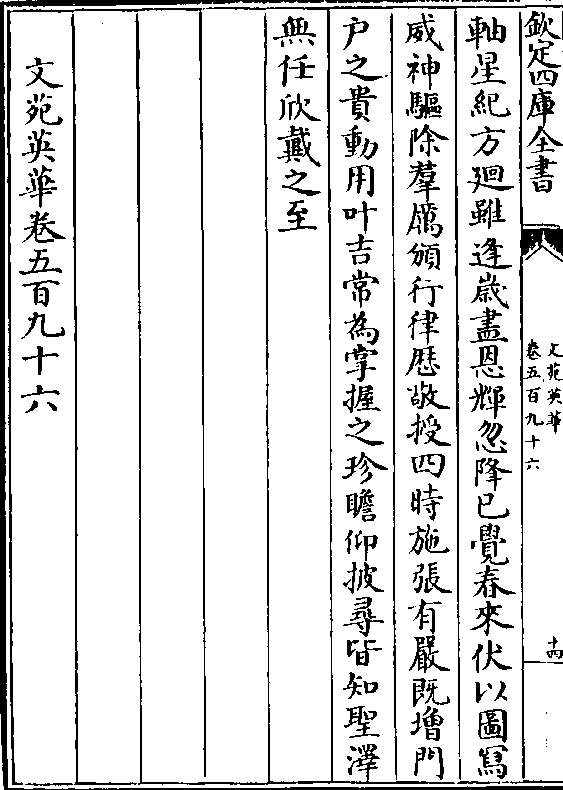 欽定四庫全書
文苑英華
卷五百九十六
十四
軸星紀方廻雖逢歲盡恩輝忽降已覺春來伏以圖寫
威神驅除羣厲頒行律歴敬授四時施張有嚴既增門
户之貴動用叶吉常為掌握之珍瞻仰披尋皆知聖澤
無任欣戴之至
文苑英華卷五百九十六